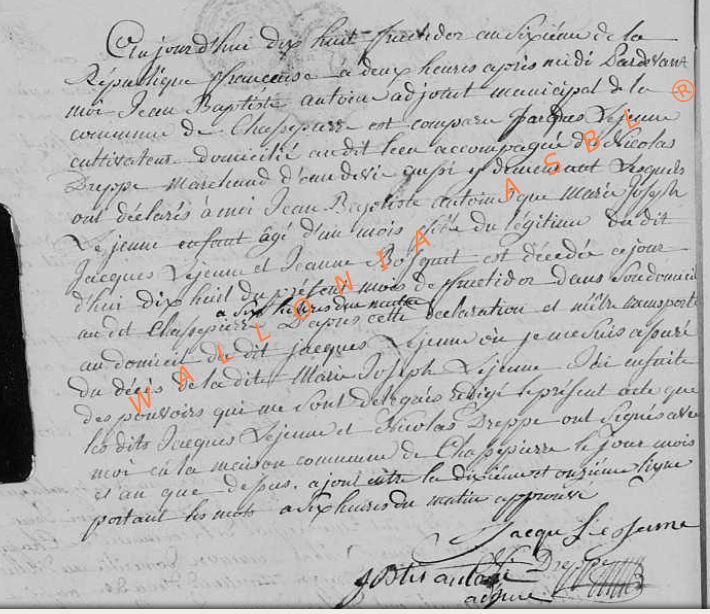 Cejourd'hui dix huit fructidor an sixième de la
République française à deux heures après midi Pardevant
moi Jean Baptiste antoine adjoint municipal de la
commune de Chassepierre est comparu Jacques Lejeune
cultivateur domicilié audit lieu accompagné de Nicolas
Dreppe Marchand d'eau de vie aussi y demeurant Lesquels
ont déclarés à moi Jean Baptiste antoine que Marie Joseph
Lejeune enfant âgé d'un mois fille du légitime du dit
Jacques Lejeune et Jeanne est décedée cejour
d'hui dix huit du présent mois de fructidor dans son domicil
a six heures du matin
audit Chassepierre D'après cette declaration et m'être transporté
au domicil du dit jacques Lejeune où je me suis assuré
du décès de ladite Marie Joseph Lejeune J'ai ensuite
des pouvoirs qui me sont delegués redigé le présent acte que
les dits Jacques Lejeune et Nicolas Dreppe ont signés avec
moi à la maison commune de Chassepierre le jour mois
et an que dessus. ajout entre la dixième et onzième ligne
portant les mots a six heures du matin approuvé
Jacque Le Jeune
Dreppe
antoine
adjoint
WALLONIA ASBL ®